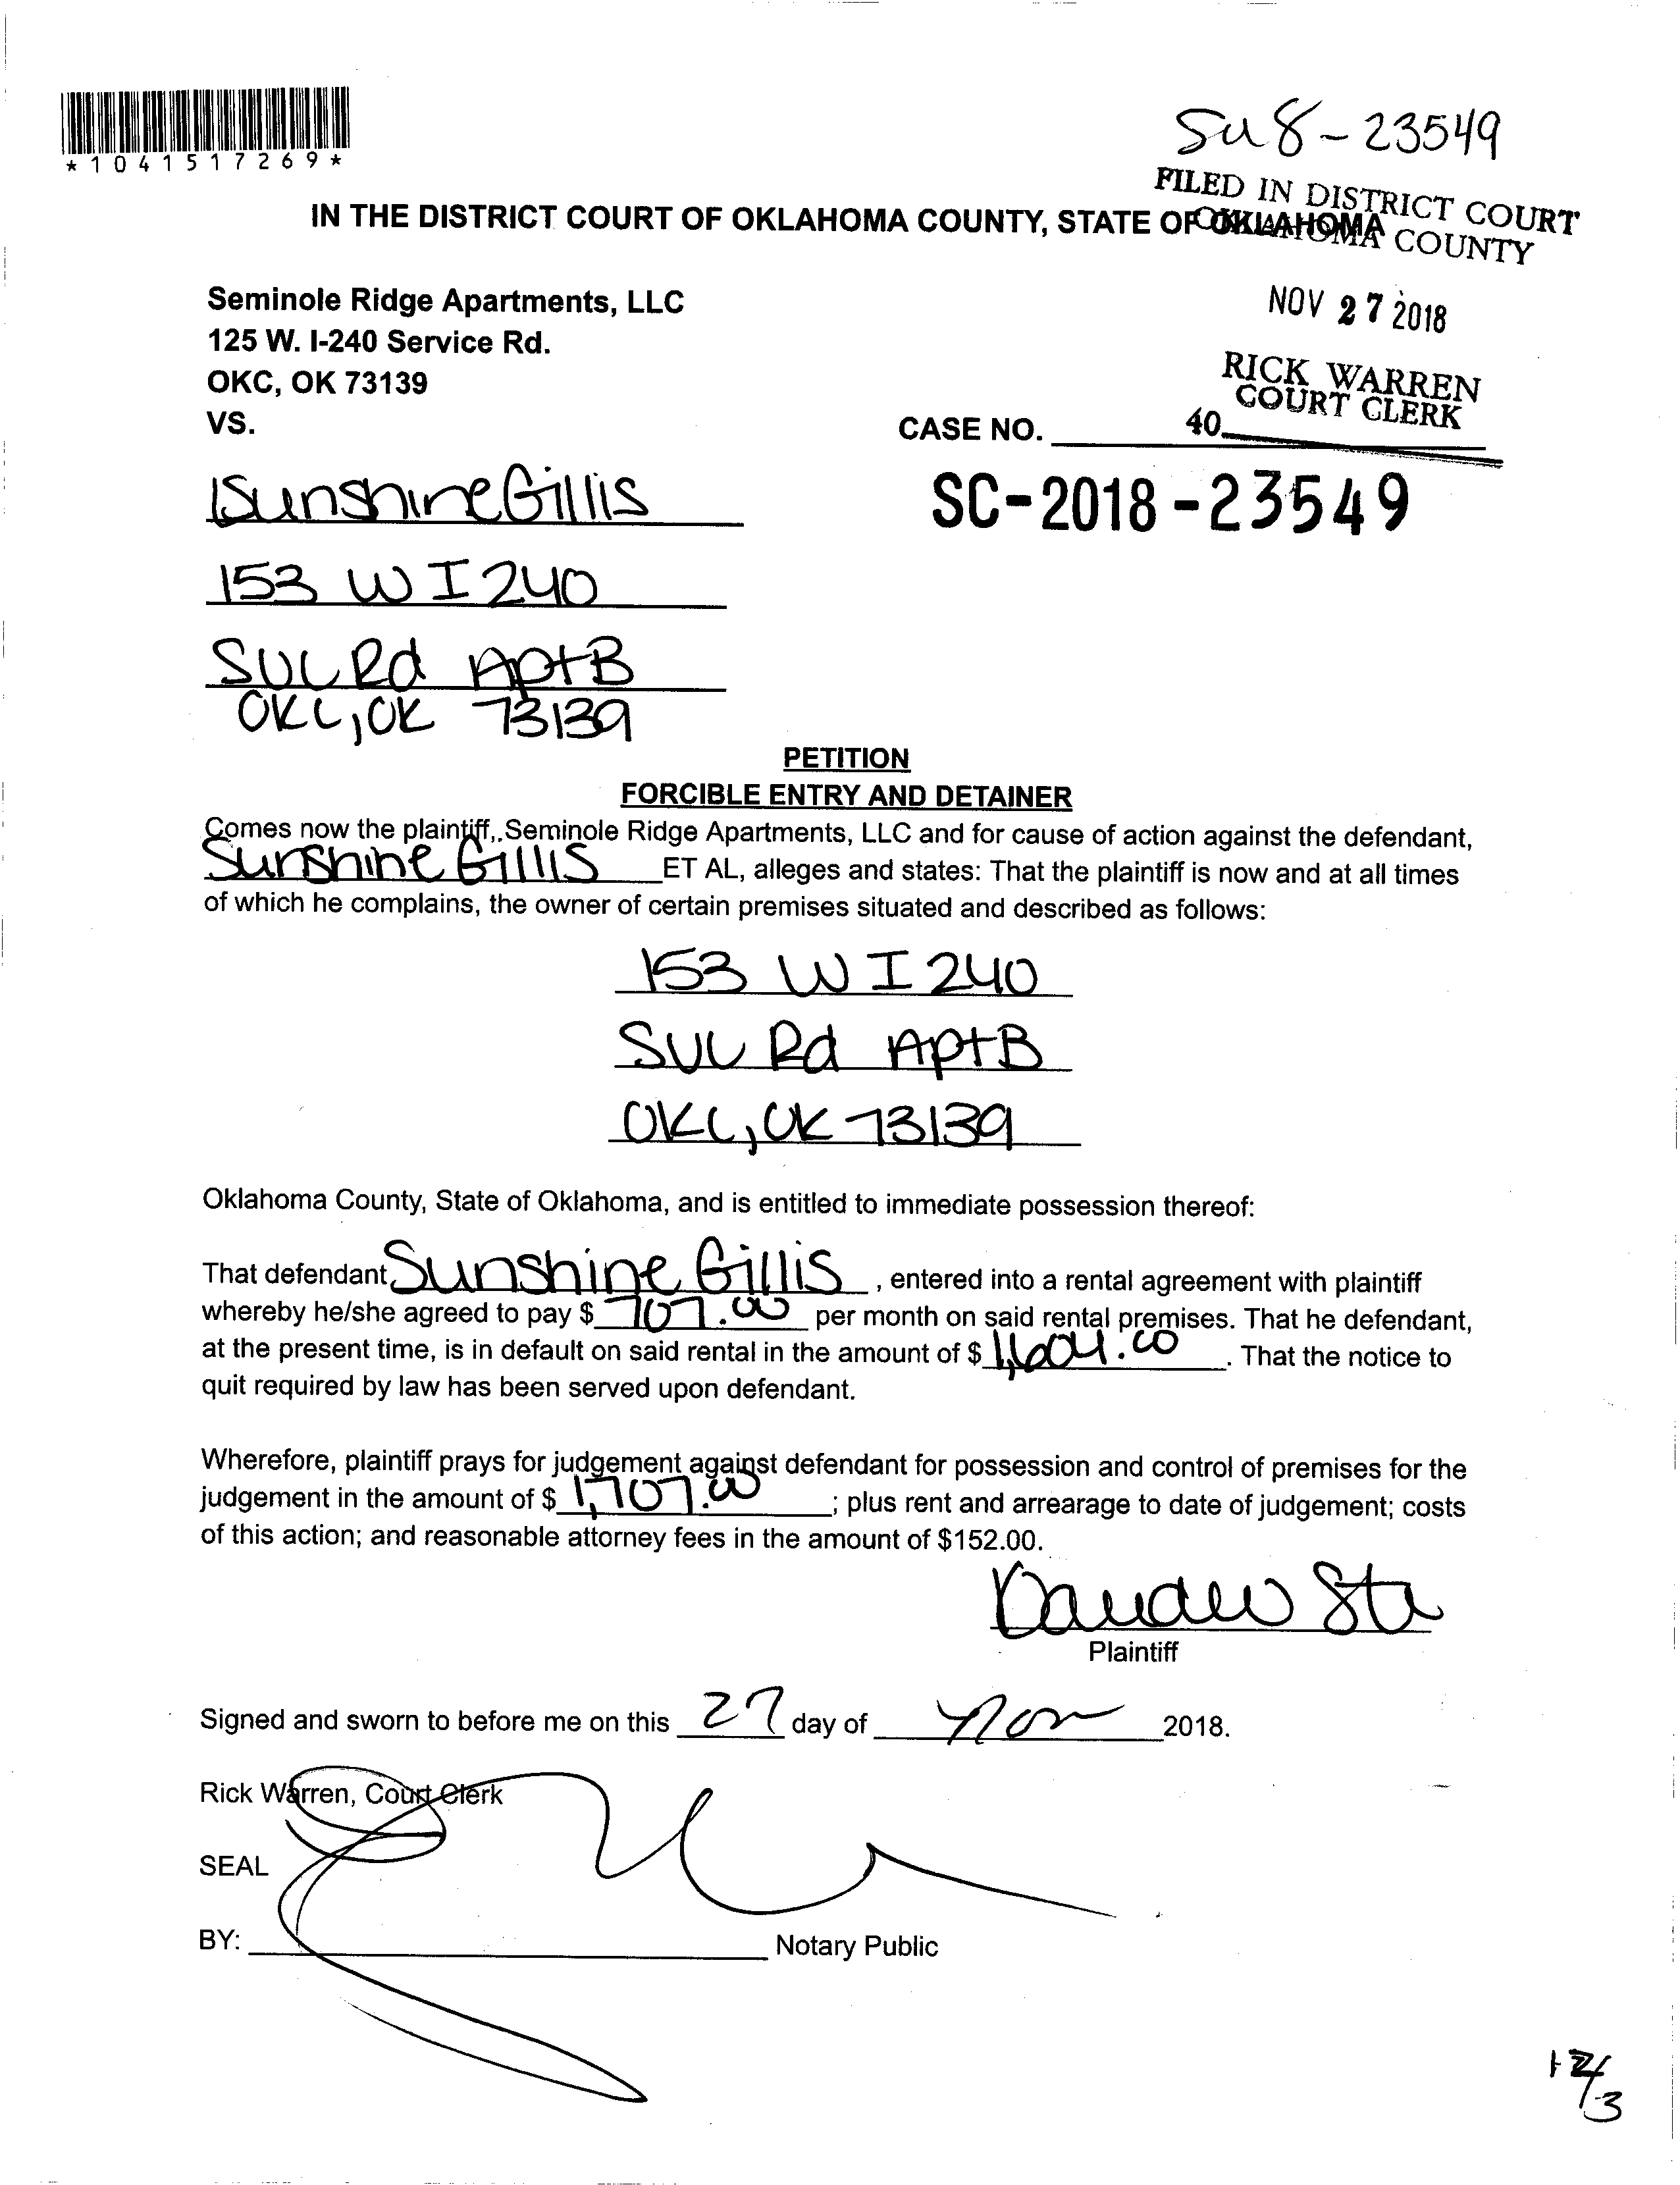 *1041517269*
Su8-23549
FILED IN DISTRICT COURT
OKLAHOMA COUNTY
IN THE DISTRICT COURT OF OKLAHOMA COUNTY, STATE OF OKLAHOMA
Seminole Ridge Apartments, LLC
NOV 27 2018
125 W. I-240 Service Rd.
OKC, OK 73139
RICK WARREN
COURT CLERK
VS.
CASE NO.
40
Sunshine Gillis
SC-2018-23549
153 W I 240
SVC Rd Apt B
OKC, OK 73139
PETITION
FORCIBLE ENTRY AND DETAINER
Comes now the plaintiff,.Seminole Ridge Apartments, LLC and for cause of action against the defendant,
Sunshine Gillis ET AL, alleges and states: That the plaintiff is now and at all times
of which he complains, the owner of certain premises situated and described as follows:
153 W I 240
SVC Rd Apt B
OKC, OK 73139
Oklahoma County, State of Oklahoma, and is entitled to immediate possession thereof:
That defendant Sunshine Gillis, entered into a rental agreement with plaintiff
whereby he/she agreed to pay $ 707.00 per month on said rental premises. That he defendant,
at the present time, is in default on said rental in the amount of $ 1,604.00. That the notice to
quit required by law has been served upon defendant.
Wherefore, plaintiff prays for judgement against defendant for possession and control of premises for the
judgement in the amount of $ 1,707.00; plus rent and arrearage to date of judgement; costs
of this action; and reasonable attorney fees in the amount of $152.00.
Plaintiff
Signed and sworn to before me on this 27 day of Nov 2018.
Rick Warren, Court Clerk
SEAL
BY: Notary Public
12/3